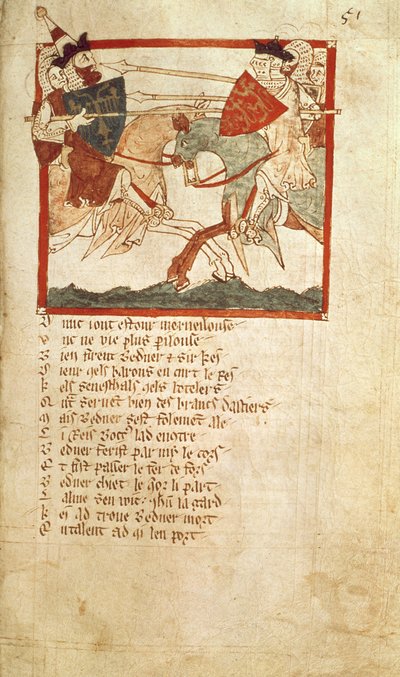 51
U nuc iout estour merueilouse
U nc ne vie plus pilouse
B ien firent Bedver & sir kes
D ieur qels barons en curt le Res
K els seneschals qels botelers
Q ut seruet bien des brancs dasciers
M ais Bedver sest folement ale
L i Reis Bocs lad encotre
B edver ferist par my le cors
E t fist passer le fer de fors
B edver chiet le qor li part
L alme sen wit ihu la gard
K ei ad troue Bedver mort
E ntalent ad qi len port